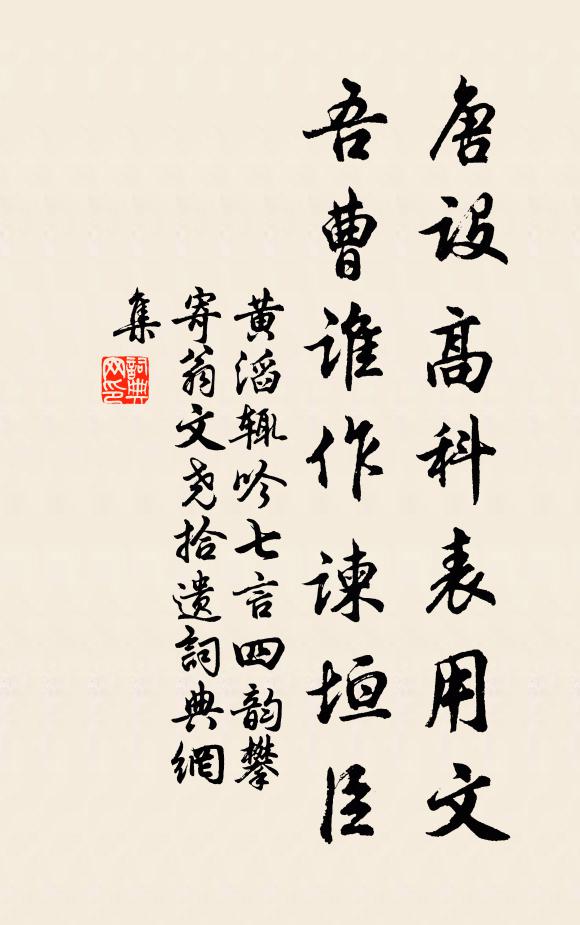 唐設高科表用文
吾曹誰作諫垣臣
黄滔輒吟七言四韵攀
寄翁文尧拾遺詞典網
集
詞典
网印